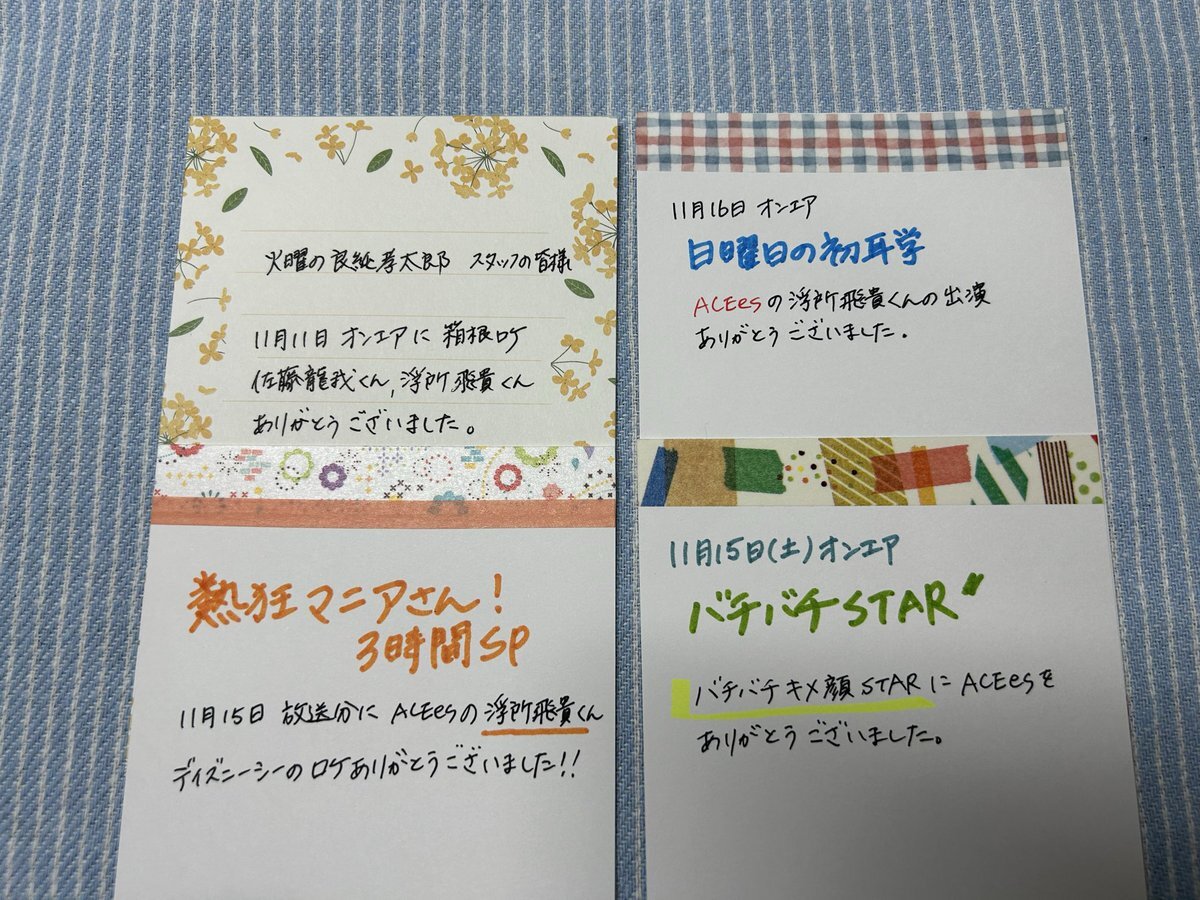 火曜の良純孝太郎 スタッフの皆様
11月11日 オンエアに 箱根ロケ
佐藤龍我くん, 浮所飛貴くん
ありがとうございました。
熱狂マニアさん!
3時間SP
11月15日 放送分に ACEesの浮所飛貴くん
ディズニーシーのロケありがとうございました!!
11月16日 オンエア
日曜日の初耳学
ACEesの浮所飛貴くんの出演
ありがとうございました。
11月15日(土)オンエア
バチバチSTAR〃
バチバチキメ顔STARにACEesを
ありがとうございました。